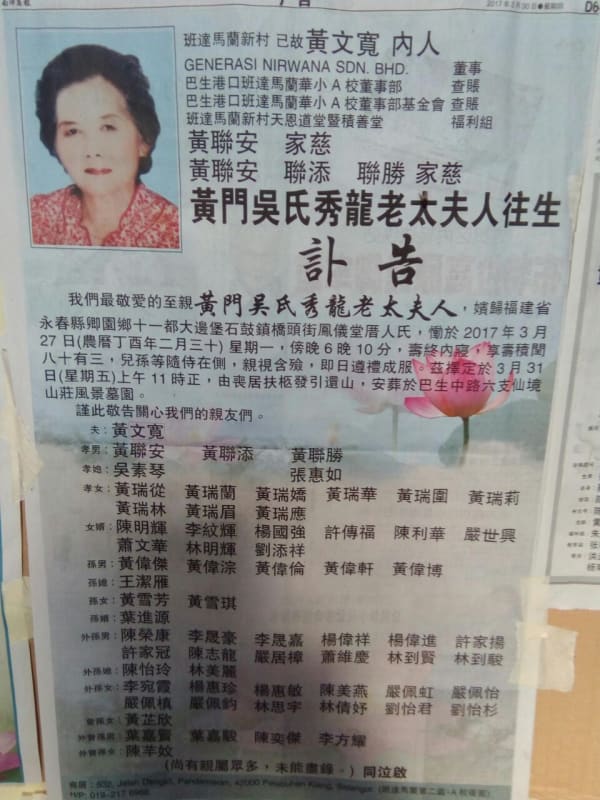 2017年3月30日●星期四
D6
班達馬蘭新村 已故 黃文寬 內人
GENERASI NIRWANA SDN. BHD. 董事
巴生港口班達馬蘭華小A校董事部 查賬
巴生港口班達馬蘭華小A校董事部基金會 查賬
班達馬蘭新村天恩道堂暨積善堂 福利組
黃聯安 家慈
黃聯安 聯添 聯勝 家慈
黃門吳氏秀龍老太夫人往生
訃告
我們最敬愛的至親黃門吳氏秀龍老太夫人，嬪歸福建省
永春縣卿園鄉十一都大邊堡石鼓鎮橋頭街鳳儀堂厝人氏，慟於2017年3月
27日(農曆丁酉年二月三十) 星期一，傍晚6晚10分，壽終內寢，享壽積閏
八十有三，兒孫等隨侍在側，親視含殮，即日遵禮成服。茲擇定於3月31
日(星期五)上午11時正，由喪居扶柩發引還山，安葬於巴生中路六支仙境
山莊風景墓園。
謹此敬告關心我們的親友們。
夫：黃文寬
孝男：黃聯安 黃聯添 黃聯勝
孝媳：吳素琴 張惠如
孝女：黃瑞從 黃瑞蘭 黃瑞嬌 黃瑞華 黃瑞圍 黃瑞莉
黃瑞林 黃瑞眉 黃瑞應
女婿：陳明輝 李紋輝 楊國強 許傳福 陳利華 嚴世興
蕭文華 林明輝 劉添祥
孫男：黃偉傑 黃偉淙 黃偉倫 黃偉軒 黃偉博
孫媳：王潔雁
孫女：黃雪芳 黃雪琪
孫婿：葉進源
外孫男：陳榮康 李晟豪 李晟嘉 楊偉祥 楊偉進 許家揚
許家冠 陳志龍 嚴居樟 蕭維慶 林到賢 林到駿
外孫媳：陳怡玲 林美麗
外孫女：李宛霞 楊惠珍 楊惠敏 陳美燕 嚴佩虹 嚴佩怡
嚴佩槙 嚴佩鈞 林思宇 林倩妤 劉怡君 劉怡杉
曾孫女：黃芷欣
外曾孫男：葉嘉賢 葉嘉駿 陳奕傑 李方耀
外曾孫女：陳芊妏
(尚有親屬眾多，未能盡錄。) 同泣啟
喪居：932, Jalan Dengkil, Pandamaran, 42000 Pelabuhan Klang, Selangor.
H/P: 019-217 6968